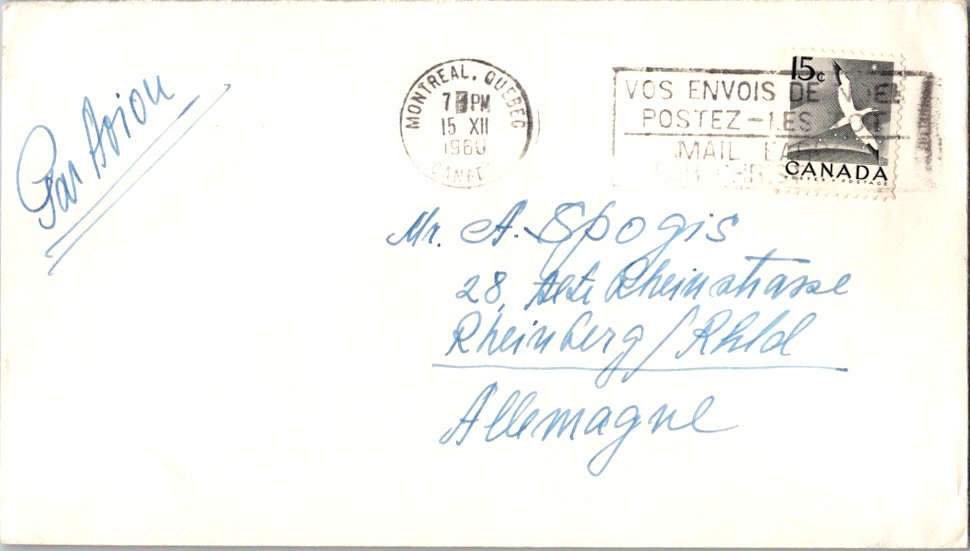 Par Avion
MONTREAL, QUEBEC
7 PM
15 XII
1960
CANADA
VOS ENVOIS DE NOEL
POSTEZ-LES TOT
MAIL EARLY
15c
CANADA
POSTES · POSTAGE
Mr. A. Spogis
28, Alte Rheinstrasse
Rheinberg/Rhld
Allemagne